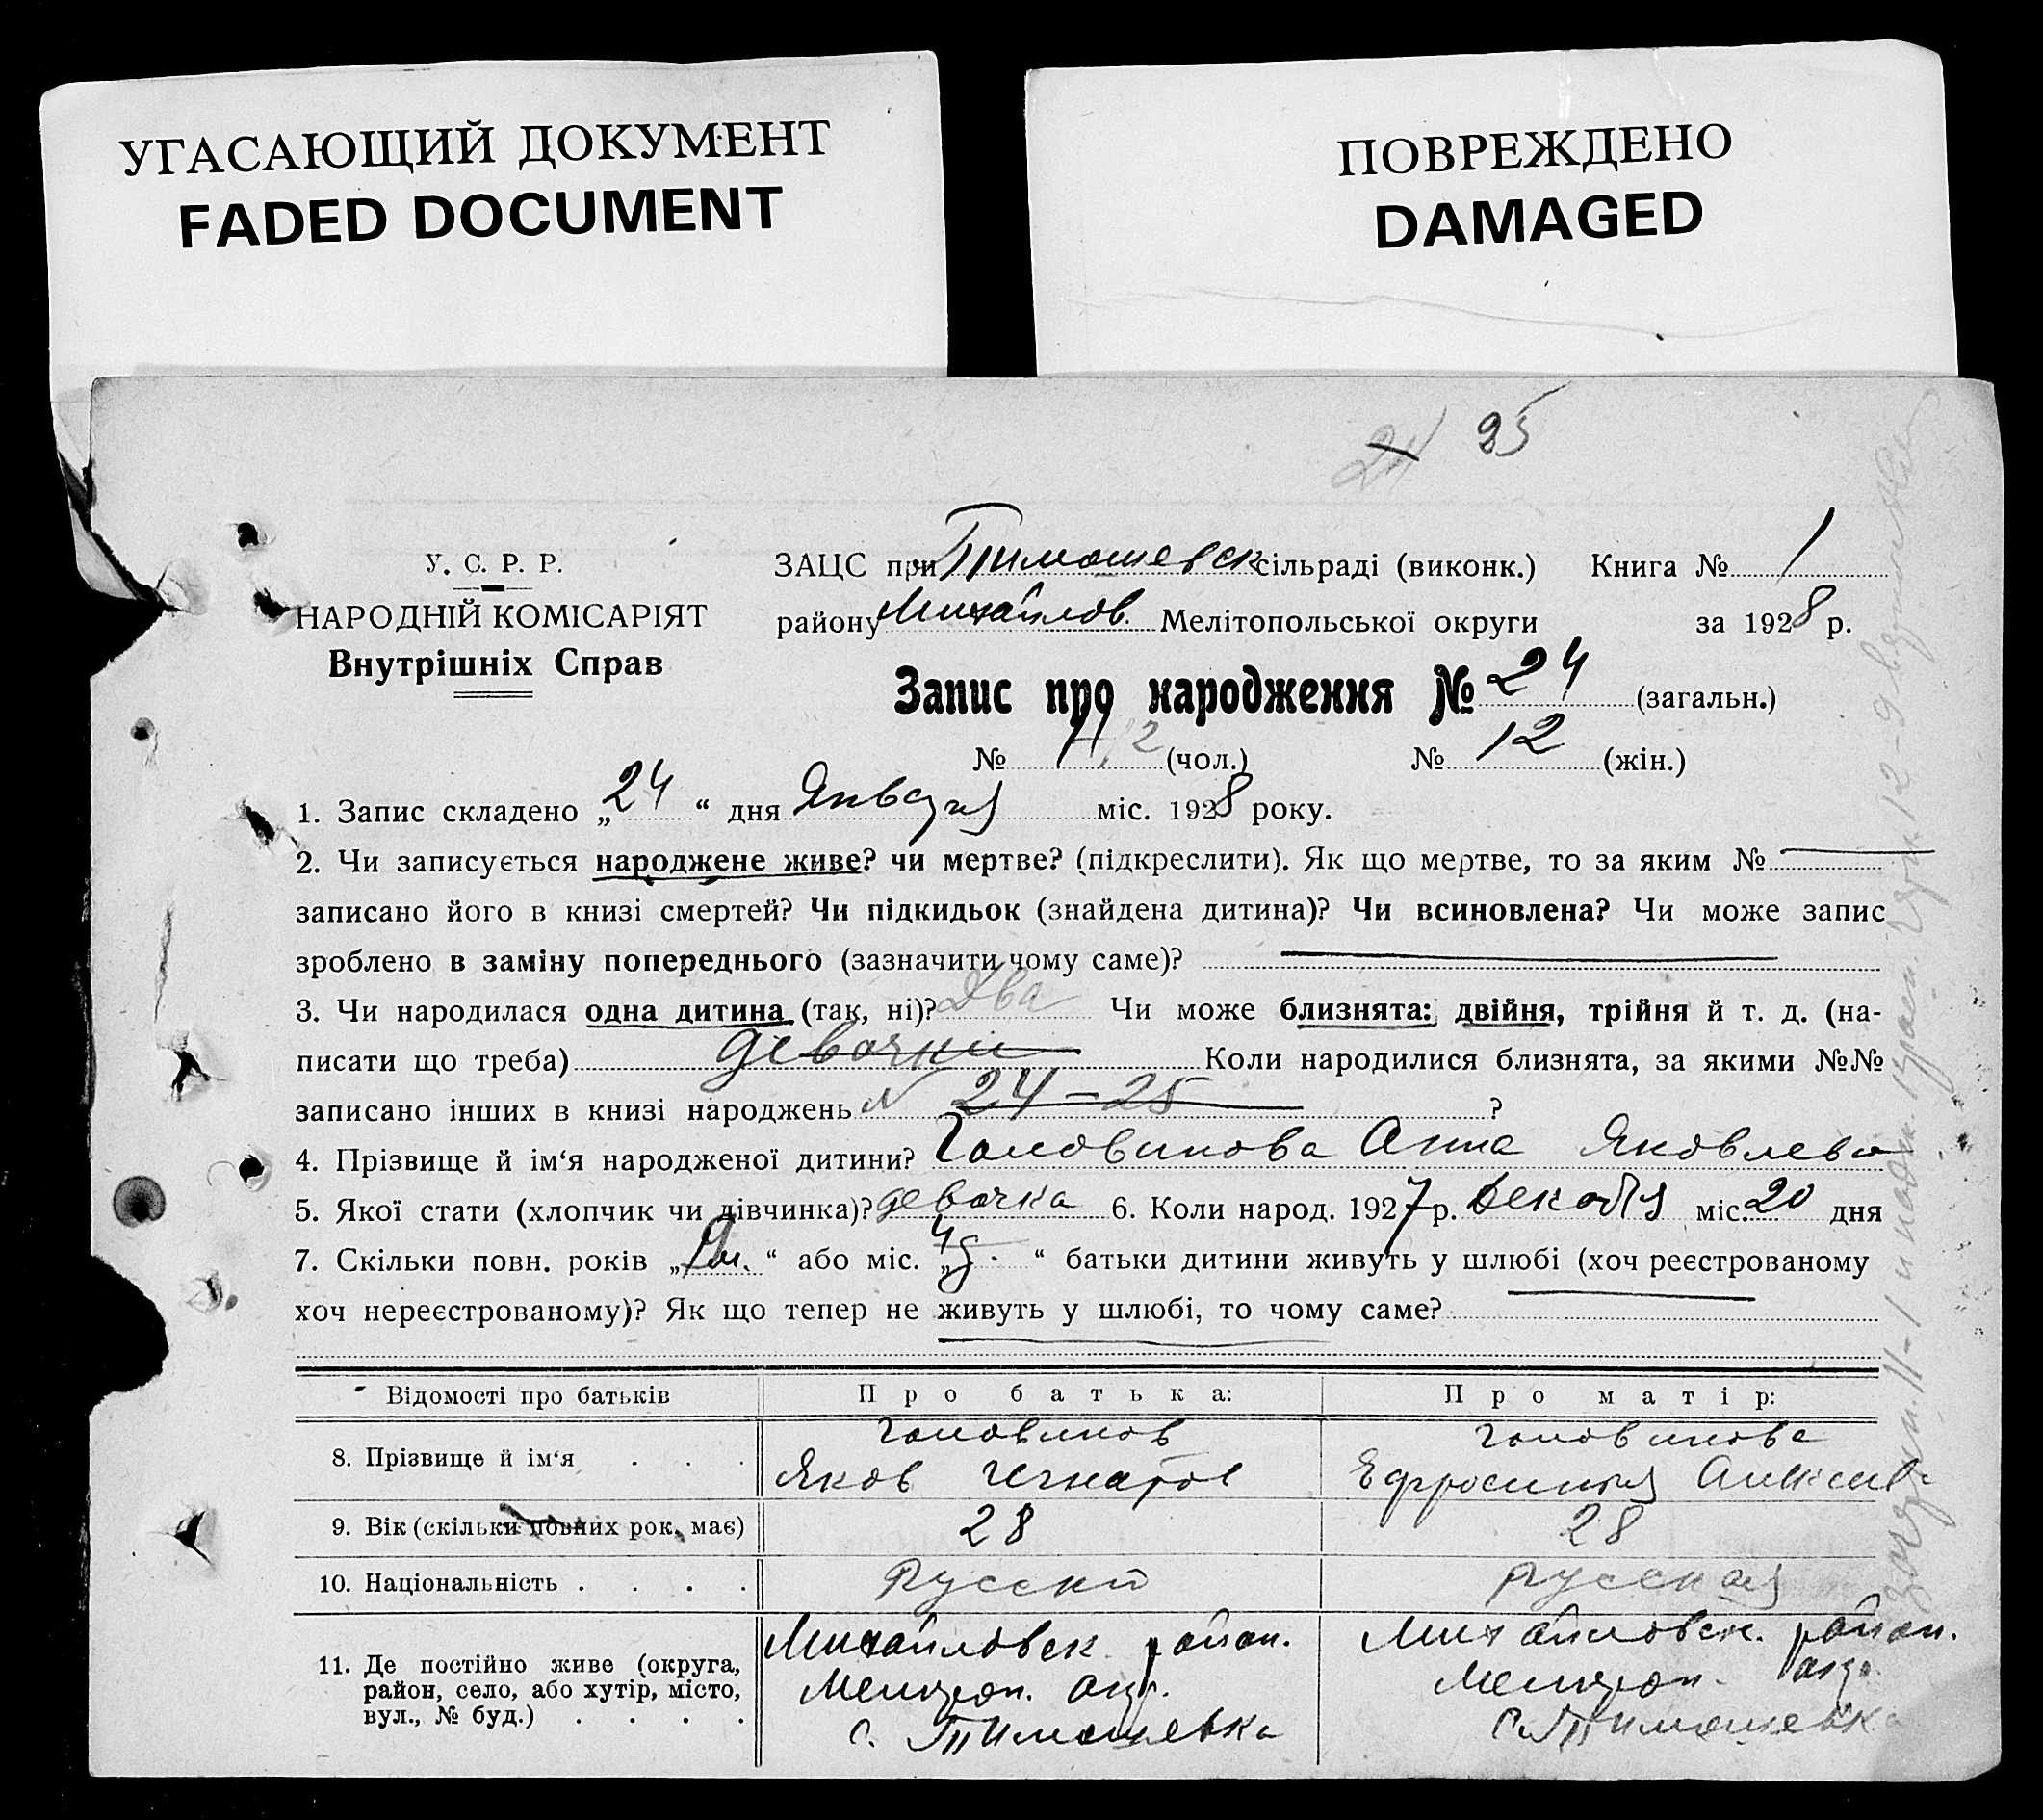 УГАСАЮЩИЙ ДОКУМЕНТ
FADED DOCUMENT
ПОВРЕЖДЕНО
DAMAGED
24 25
У. С. Р. Р.
НАРОДНІЙ КОМІСАРІЯТ
Внутрішніх Справ
ЗАЦС при Тимошевск сільраді (виконк.) Книга № 1
району Михайлов. Мелітопольської округи за 1928 р.
Запис про народження № 24 (загальн.)
№ 12 (чол.) № 12 (жін.)
1. Запис складено „24“ дня Января міс. 1928 року.
2. Чи записується народжене живе? чи мертве? (підкреслити). Як що мертве, то за яким №
записано його в книзі смертей? Чи підкидьок (знайдена дитина)? Чи всиновлена? Чи може запис
зроблено в заміну попереднього (зазначити чому саме)?
3. Чи народилася одна дитина (так, ні)? Два Чи може близнята: двійня, трійня й т. д. (на-
писати що треба) девочки Коли народилися близнята, за якими №№
записано інших в книзі народжень N 24-25 ?
4. Прізвище й ім‘я народженої дитини? Головинова Анна Яковлева
5. Якої стати (хлопчик чи дівчинка)? девочка 6. Коли народ. 1927 р. Декабя міс. 20 дня
7. Скільки повн. років „ “ або міс. „ “ батьки дитини живуть у шлюбі (хоч реєстрованому
хоч нереєстрованому)? Як що тепер не живуть у шлюбі, то чому саме?
Відомості про батьків Про батька: Про матір:
8. Прізвище й ім‘я . . . Головинов Яков Игнатов Головинова Ефросинья Алексеев
9. Вік (скільки повних рок. має) 28 28
10. Національність . . . . Русский Русская
11. Де постійно живе (округа, район, село, або хутір, місто, вул., № буд.) . . . .
Михайловск район. Михайловск. район.
Мелитоп. окр. Мелитоп. окр.
с. Тимошевка с. Тимошевка